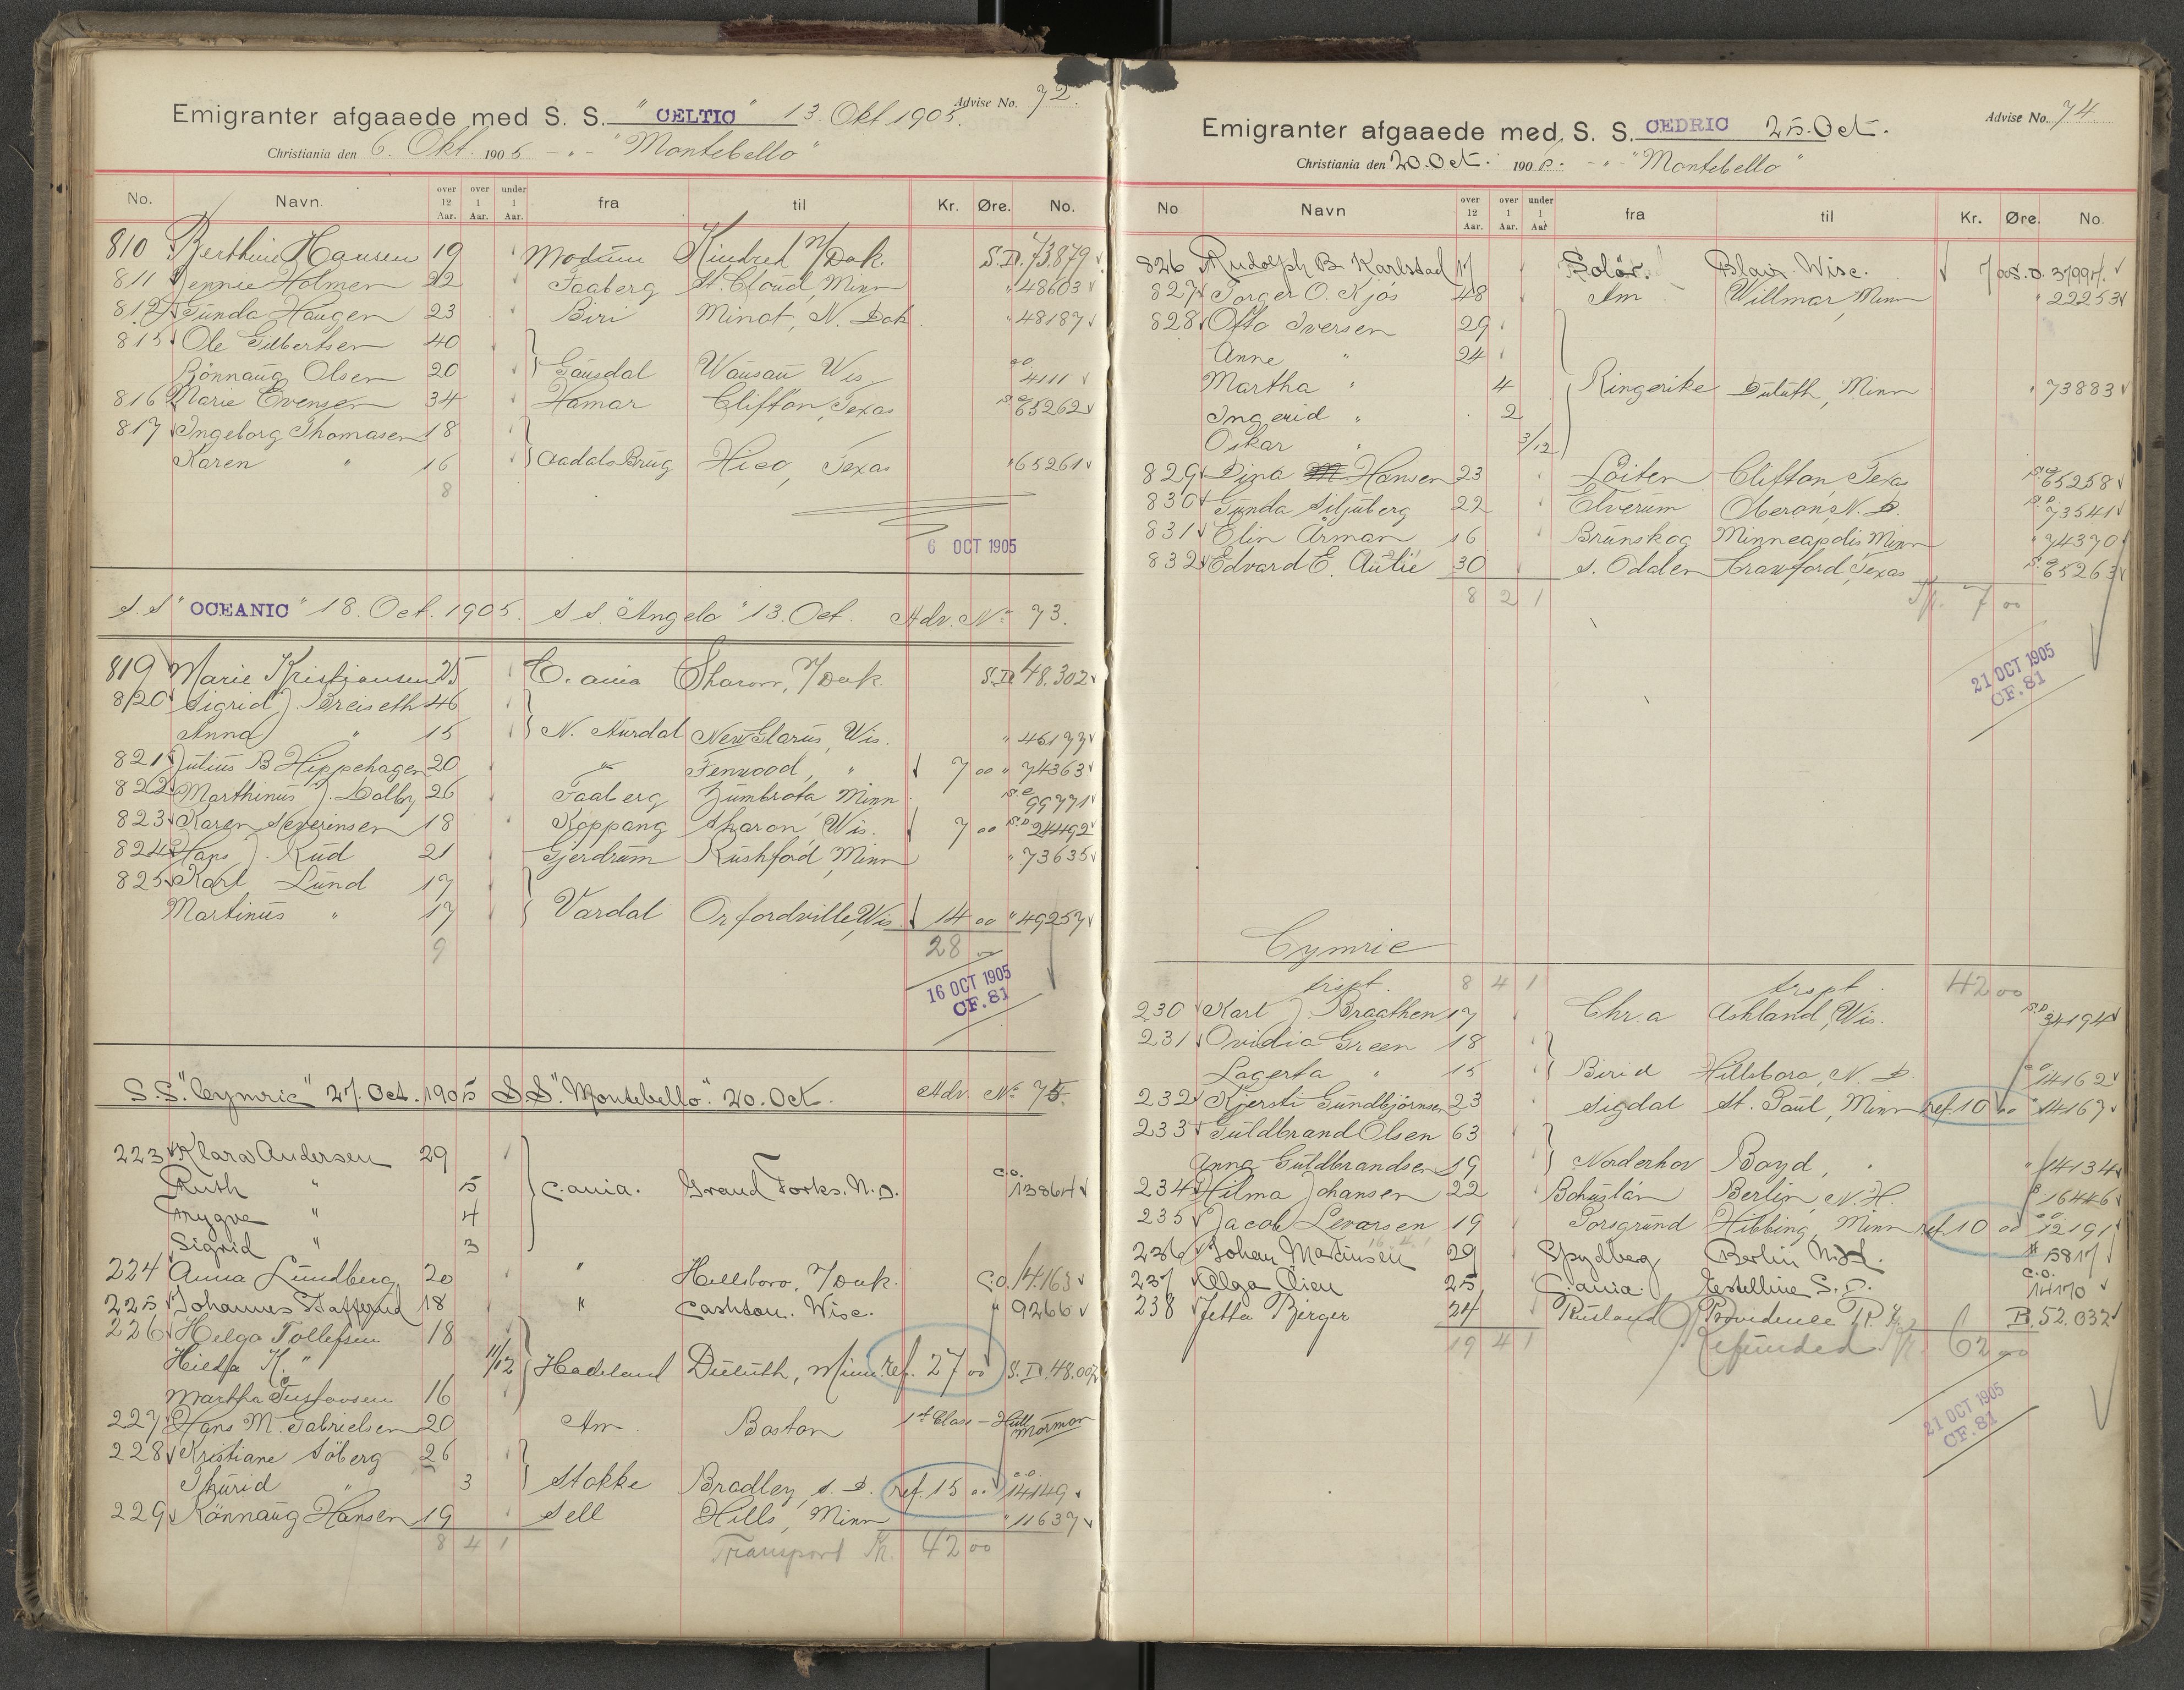 Emigranter afgaaede med S. S. "CELTIC" 13. Okt 1905. Advise No. 72.
Christiania den 6. Okt. 1905 -"- "Montebello"
No. Navn. over 12 Aar. over 1 Aar. under 1 Aar. fra til Kr. Øre. No.
810 Berthine Hansen 19 Modum Kindred N/Dak. S.D. 73.879
811 Jennie Holmen 22 Faaberg St. Cloud, Minn " 48603
812 Gunda Haugen 23 Biri Minot, N. Dak. " 48187
815 Ole Gulbertsen 40
Rönnaug Olsen 20 Gausdal Wausau Wis. c.o. 4111
816 Marie Evensen 34 Hamar Clifton, Texas 65262
817 Ingeborg Thomasen 18
Karen " 16 Aadals Brug Hico, Texas " 65261
8
6 OCT 1905
S.S. "OCEANIC" 18. Oct. 1905. S.S. "Angelo" 13. Oct. Adv. No 73.
819 Marie Kristiansen 25 C.ania Sharon, N/Dak. S.D. 48.302
820 Sigrid J. Breiseth 46
Anna " 15 N. Aurdal New Glarus, Wis. " 46177
821 Julius B Hippehagen 20 " Fenwood, " 7 00 " 74363
822 Marthinus J. Dalby 26 Faaberg Zumbrota Minn 99771
823 Karen Severinsen 18 Koppang Sharon, Wis. 7 00 S.D. 24492
824 Hans J. Rud 21 Gjerdrum Rushford, Minn " 73635
825 Karl Lund 17
Martinus " 17 Vardal Orfordville, Wis. 14 00 " 49257
9 28 00
16 OCT 1905
CF. 81
S.S. "Cymric" 27. Oct. 1905 S.S. "Montebello". 20. Oct. Adv. No 75.
223 Klara Andersen 29
Ruth " 5 C.ania. Grand Forks. N.D. c.o. 13864
Trygve " 4
Sigrid " 3
224 Anna Lundberg 20 " Hillsboro, N/Dak. C.O. 14.163
225 Johannes Staffgard 18 " Cashton. Wisc. " 9266
226 Helga Tollefsen 18
Hilda K. " 11/12 Hadeland Duluth, Minn. ref. 27 00 S.D. 48.007
Martha Gustavsen 16
227 Hans M. Gabrielsen 20 Am Boston 1st Class - Hull Mormon
228 Kristiane Söberg 26
Thurid " 3 Stokke Bradley, S. D. ref. 15 00 c.o. 14149
229 Rönnaug Hansen 19 Sell Hills, Minn " 11637
8 4 1 Transport Kr. 42 00
Emigranter afgaaede med. S. S. CEDRIC 25. Oct. Advise No. 74
Christiania den 20. Oct. 1905. -"- "Montebello"
No Navn over 12 Aar. over 1 Aar. under 1 Aar fra til Kr. Øre. No.
826 Rudolph B. Karlstad 17 Solör. Blair. Wisc. 7 00 S.D. 37997.
827 Torger O. Kjos 48 Am Willmar, Minn " 22253
828 Otto Iversen 29
Anne " 24
Martha " 4 Ringerike Duluth, Minn " 73883
Ingerid " 2
Oskar " 3/12
829 Dina Hansen 23 Löiten Clifton, Texas 65258
830 Gunda Siljuberg 22 Elverum Oberon, N. D. S.D. 73541
831 Elin Årman 16 Brunskog Minneapolis, Minn " 74370
832 Edvard E. Autie 30 S. Odalen Crawford, Texas 65263
8 2 1 Kr. 7 00
21 OCT 1905
CF. 81
Cymric
trspt. 8 4 1 trspt. 42 00
230 Karl J. Braathen 17 Chr.a Ashland, Wis. S.D. 34194
231 Ovidia Green 18
Lagerta " 15 Birid Hillsboro, N. D. c.o. 14162
232 Kjersti Gundbjörnsen 23 Sigdal St. Paul, Minn ref. 10 00 " 14167
233 Guldbrand Olsen 63
Anna Guldbrandsen 19 Norderhov Boyd, " " 14134
234 Hilma Johansen 22 Bohuslän Berlin, N.H. 16446
235 Jacob Levorsen 19 Porsgrund Hibbing, Minn ref. 10 00 c.o. 12191
16 4 1
236 Johan Martinsen 29 Spydberg Berlin N.H. 5817
237 Olga Öien 25 C.ania. Estelline S. D. c.o. 14170
238 Jetta Berger 24 Rusland Providence R. I. B. 52.032
19 4 1 Refunded Kr. 62 00
21 OCT 1905
CF. 81